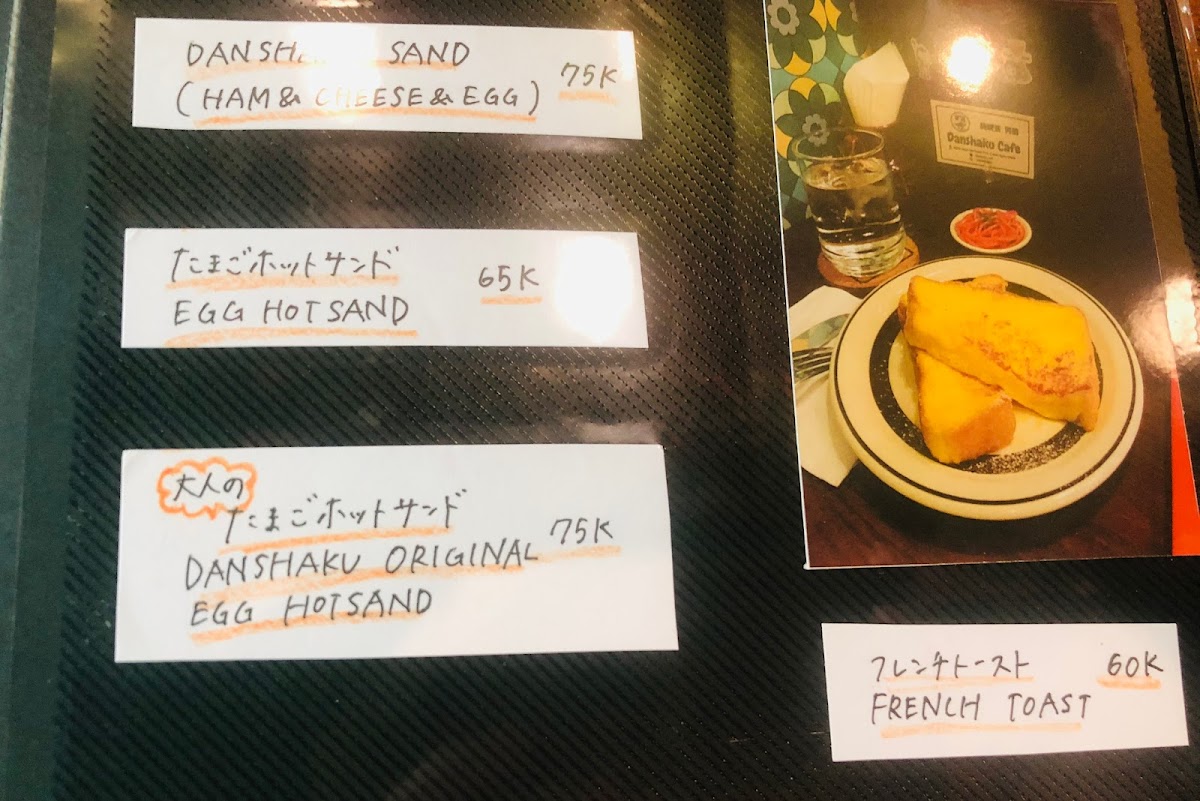 SAND
(HAM & CHEESE & EGG)
75K
たまごホットサンド
EGG HOTSAND
65K
大人の
たまごホットサンド
DANSHAKU ORIGINAL
EGG HOTSAND
75K
Danshaku Cafe
フレンチトースト
FRENCH TOAST
60K